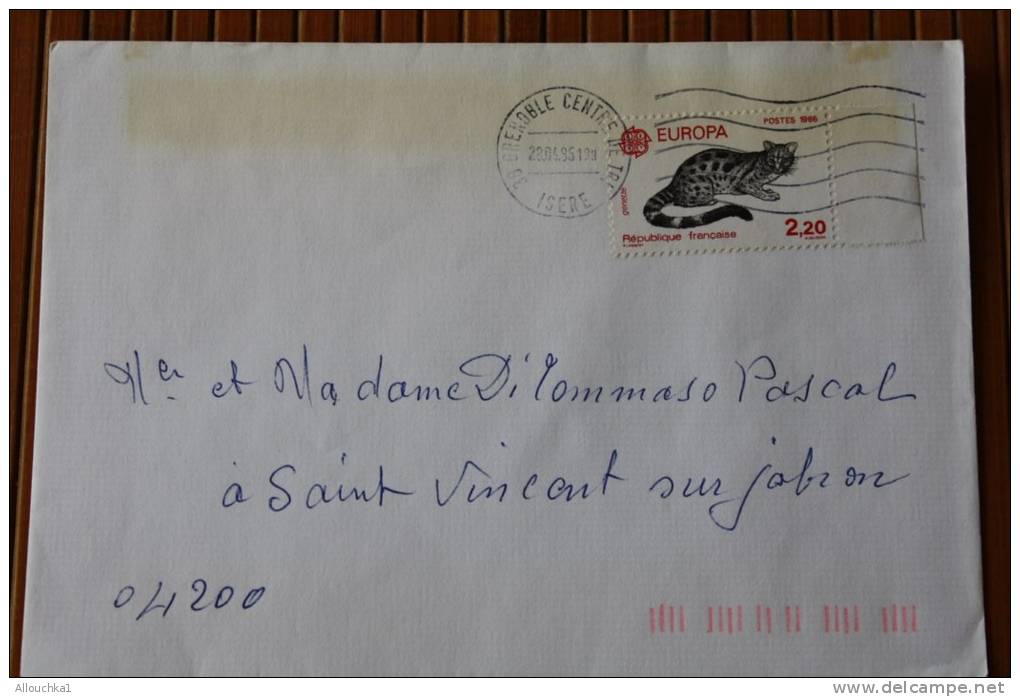 38 GRENOBLE CENTRE DE TRI
ISERE
POSTES 1986
EUROPA
genette
République française
2,20
Mer et Madame Di Tommaso Pascal
à Saint Vincent sur jabron
04200
Allouchka1
www.delcampe.net